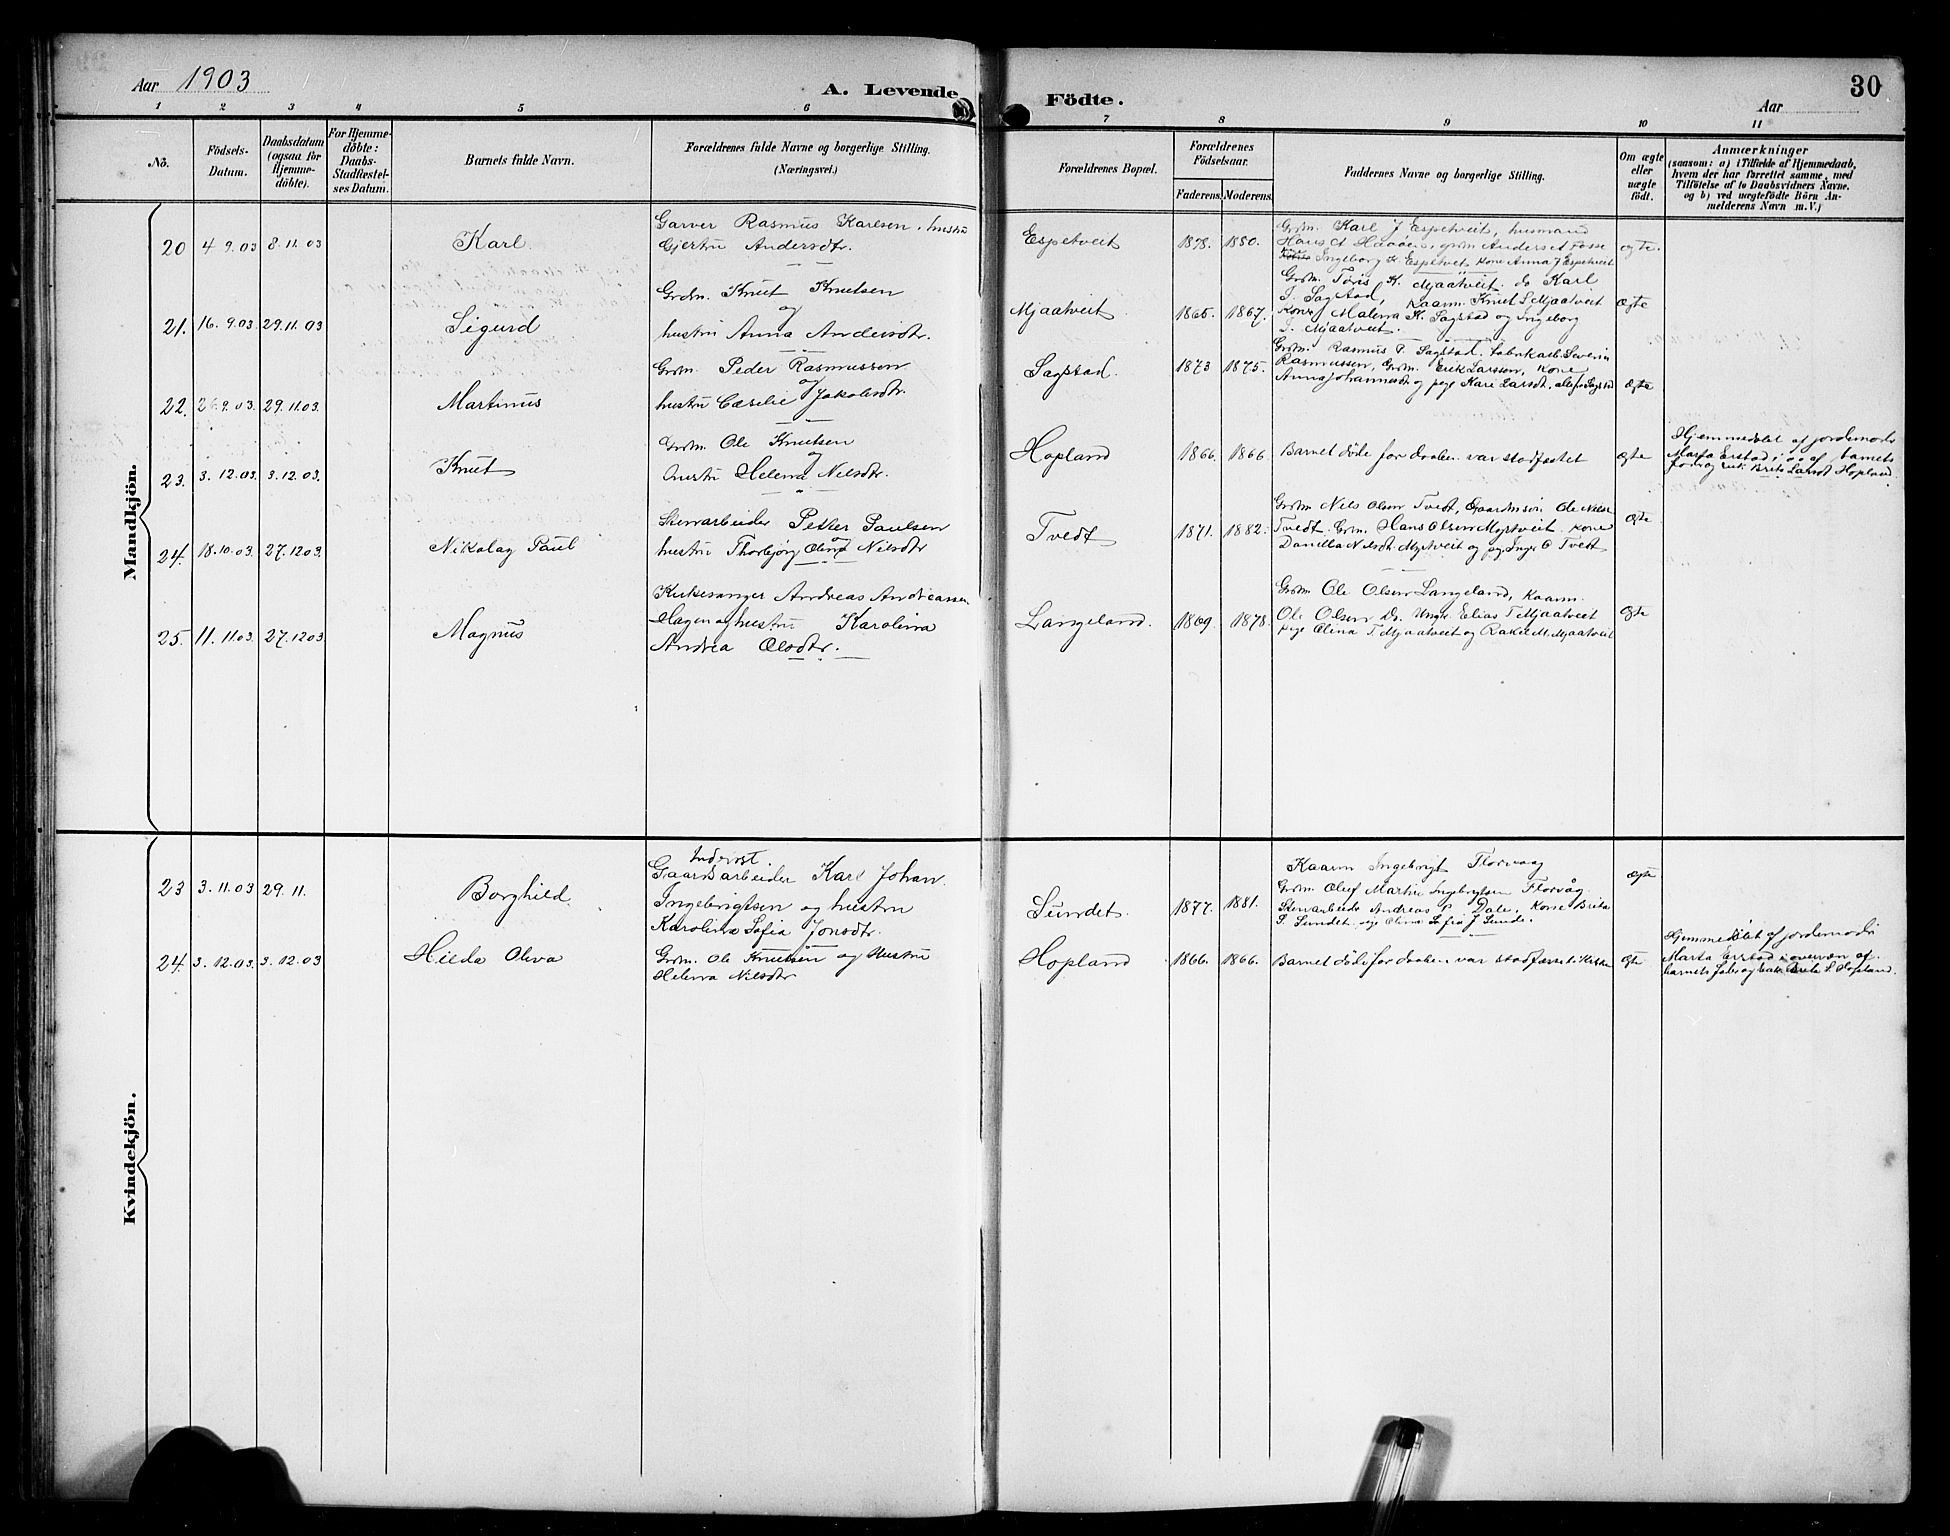 Aar 1903
A. Levende
Födte.
30
Aar
1 2 3 4 5 6 7 8 9 10 11
No.
Födsels-
Datum.
Daabsdatum
(ogsaa for
Hjemme-
döbte).
For Hjemme-
döbte:
Daabs-
Stadfæstel-
ses Datum.
Barnets fulde Navn.
Forældrenes fulde Navne og borgerlige Stilling.
(Næringsvei.)
Forældrenes Bopæl.
Forældrenes
Födselsaar.
Faderens. Moderens.
Faddernes Navne og borgerlige Stilling.
Om ægte
eller
uægte
födt.
Anmærkninger
(saasom: a) i Tilfælde af Hjemmedaab,
hvem der har forrettet samme, med
Tilföielse af to Daabsvidners Navne.
og b) ved uægtefödte Börn An-
melderens Navn m. V.)
Mandkjön.
20 4.9.03 8.11.03 Karl.
Garver Rasmus Karlsen, hustru
Gjertru Andersdtr.
Espetveit 1878. 1880.
Grdm. Karl J Espetveit, husmand
Hans A Haaøen, grdm Anders et Fosse
Ingeborg K Espetveit, kone Anna J Espetveit
ægte.
21. 16.9.03. 29.11.03 Sigurd
Grdm. Knut Knutsen
og
hustru Anna Andersdtr.
Mjaatveit 1865. 1867.
Grdm. Tøris K. Mjaatveit. do Karl
J. Sagstad, Kaarm. Knut S Mjaatveit
Kone Malena K. Sagstad og Ingeborg
J. Mjaatveit.
ægte
22. 26.9.03. 29.11.03. Martinus
Grdm. Peder Rasmussen
og
hustru Cæselie Jakobsdtr.
Sagstad. 1873 1875.
Grdm. Rasmus P. Sagstad, fabrikarb. Severin
Rasmussen, Grdm. Erik Larssen, Kone
Anna Johannesdt og pige Kari Larsdt. alle fr Sagstad
ægte
23. 3.12.03. 3.12.03. Knut
Grdm. Ole Knutsen
og
hustru Helena Nilsdtr.
Hopland 1866. 1866
Barnet døde før daaben var stadfæstet
ægte
Hjemmedøbt af jordemoder
Marta Erstad i o.a. af barnets
fader og enk. Brite Larsdt Hopland.
24. 18.10.03 27.12 03 Nikolay Paul
Stenarbeider Petter Paulsen
og
hustru Thorbjørg Olina Nilsdtr
Tvedt 1871. 1882.
Grdm Nils Olsen Tvedt, Gaardmsøn Ole Nilse
Tvedt. Grm. Hans Olsen Myrtveit. kone
Danilla Nilsdt. Myrtveit og pg. Inger O Tvedt
ægte
25. 11.11.03. 27.12 03 Magnus
Kirkesanger Andreas Andreassen
Hagen og hustru Karolina
Andrea Olsdtr.
Langeland. 1869. 1878.
Grdm Ole Olsen Langeland, Kaarm.
Ole Olsen Do. Ungk. Elias T Mjaatveit
pige Olina T. Mjaatveit og Rakel M. Mjaatveit
ægte
Kvindekjön.
23 3.11.03 29.11. Borghild.
Inderst.
Gaardsarbeider Karl Johan
Ingebrigtsen og hustru
Karolina Sofia Jonsdtr.
Sundet. 1877. 1881.
Kaarm Ingebrigt Florvaag
Grdm. Oluf Martin Ingebrigtsen Florvåg.
Stenarbeider Andreas P Dale, Kone Brita
S. Sundet, pige Olina Sofia J Sunde.
ægte
24. 3.12.03. 3.12.03 Hilda Oliva
Grdm. Ole Knutsen og Hustru
Helena Nilsdtr
Hopland 1866. 1866.
Barnet døde før daaben var stadfæstet i kirken
ægte
Hjemmedøbt af jordemoder
Marta Erstad i overvær af
barnets fader og enke Brita L Hopland.